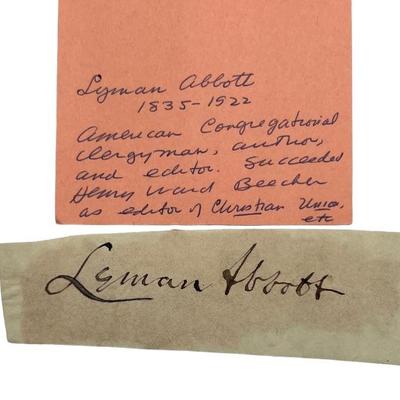 Lyman Abbott
1835-1922
American Congregational
clergyman, author,
and editor. Succeeded
Henry Ward Beecher
as editor of Christian Union,
etc
Lyman Abbott